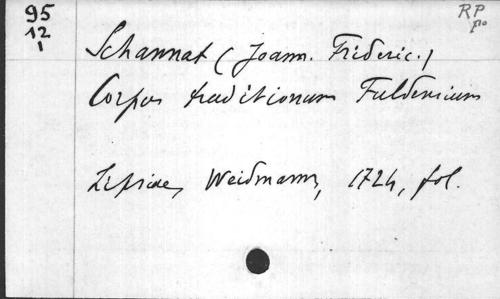 95
12
1
RP
Schannat (Joann. Frideric.)
Corpus traditionum Fuldensium
Lipsiae, Weidmann, 1724, fol.